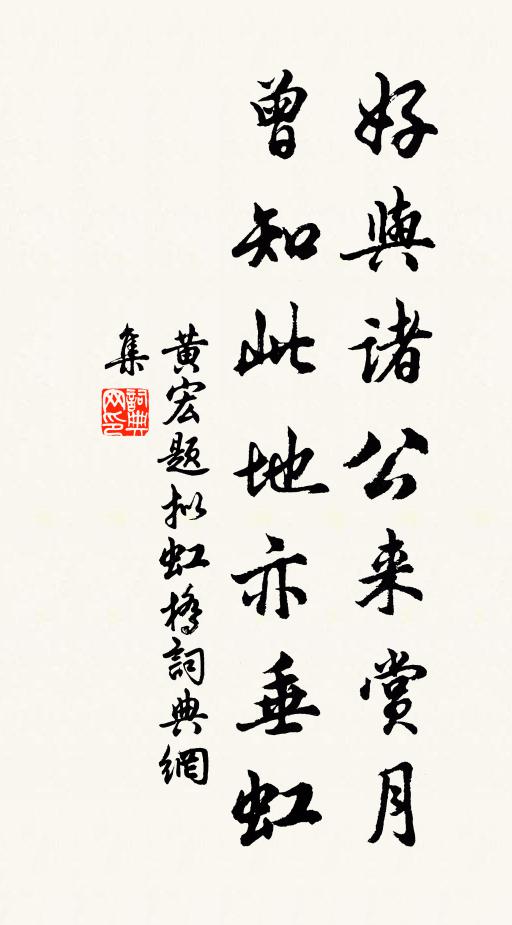 好與諸公来賞月
曾知此地亦垂虹
黄宏題拟虹橋詞典網
集
詞典
网印